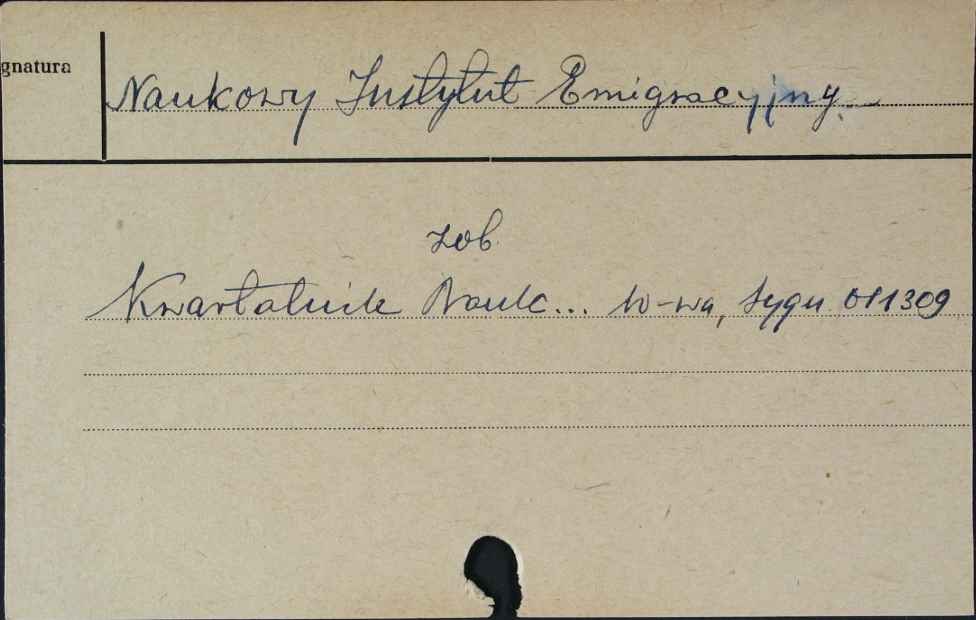 gnatura
Naukowy Instytut Emigracyjny.
zob.
Kwartalnik Nauk... W-wa, sygn. 011309